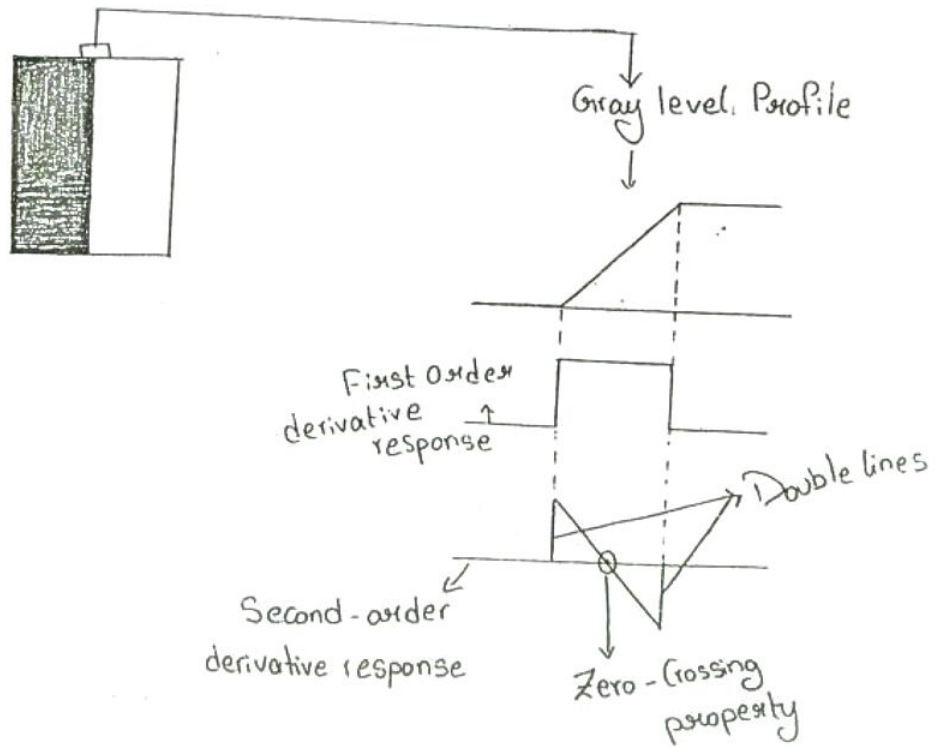 Gray level. Profile
First Order
derivative
response
Double lines
Second-order
derivative response
Zero-Crossing
property